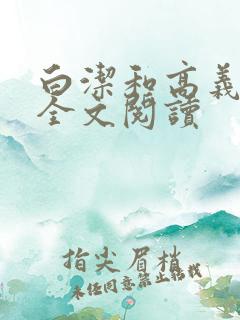 白潔和高義
全文閱讀
指尖眉梢
未任同意禁止轉載